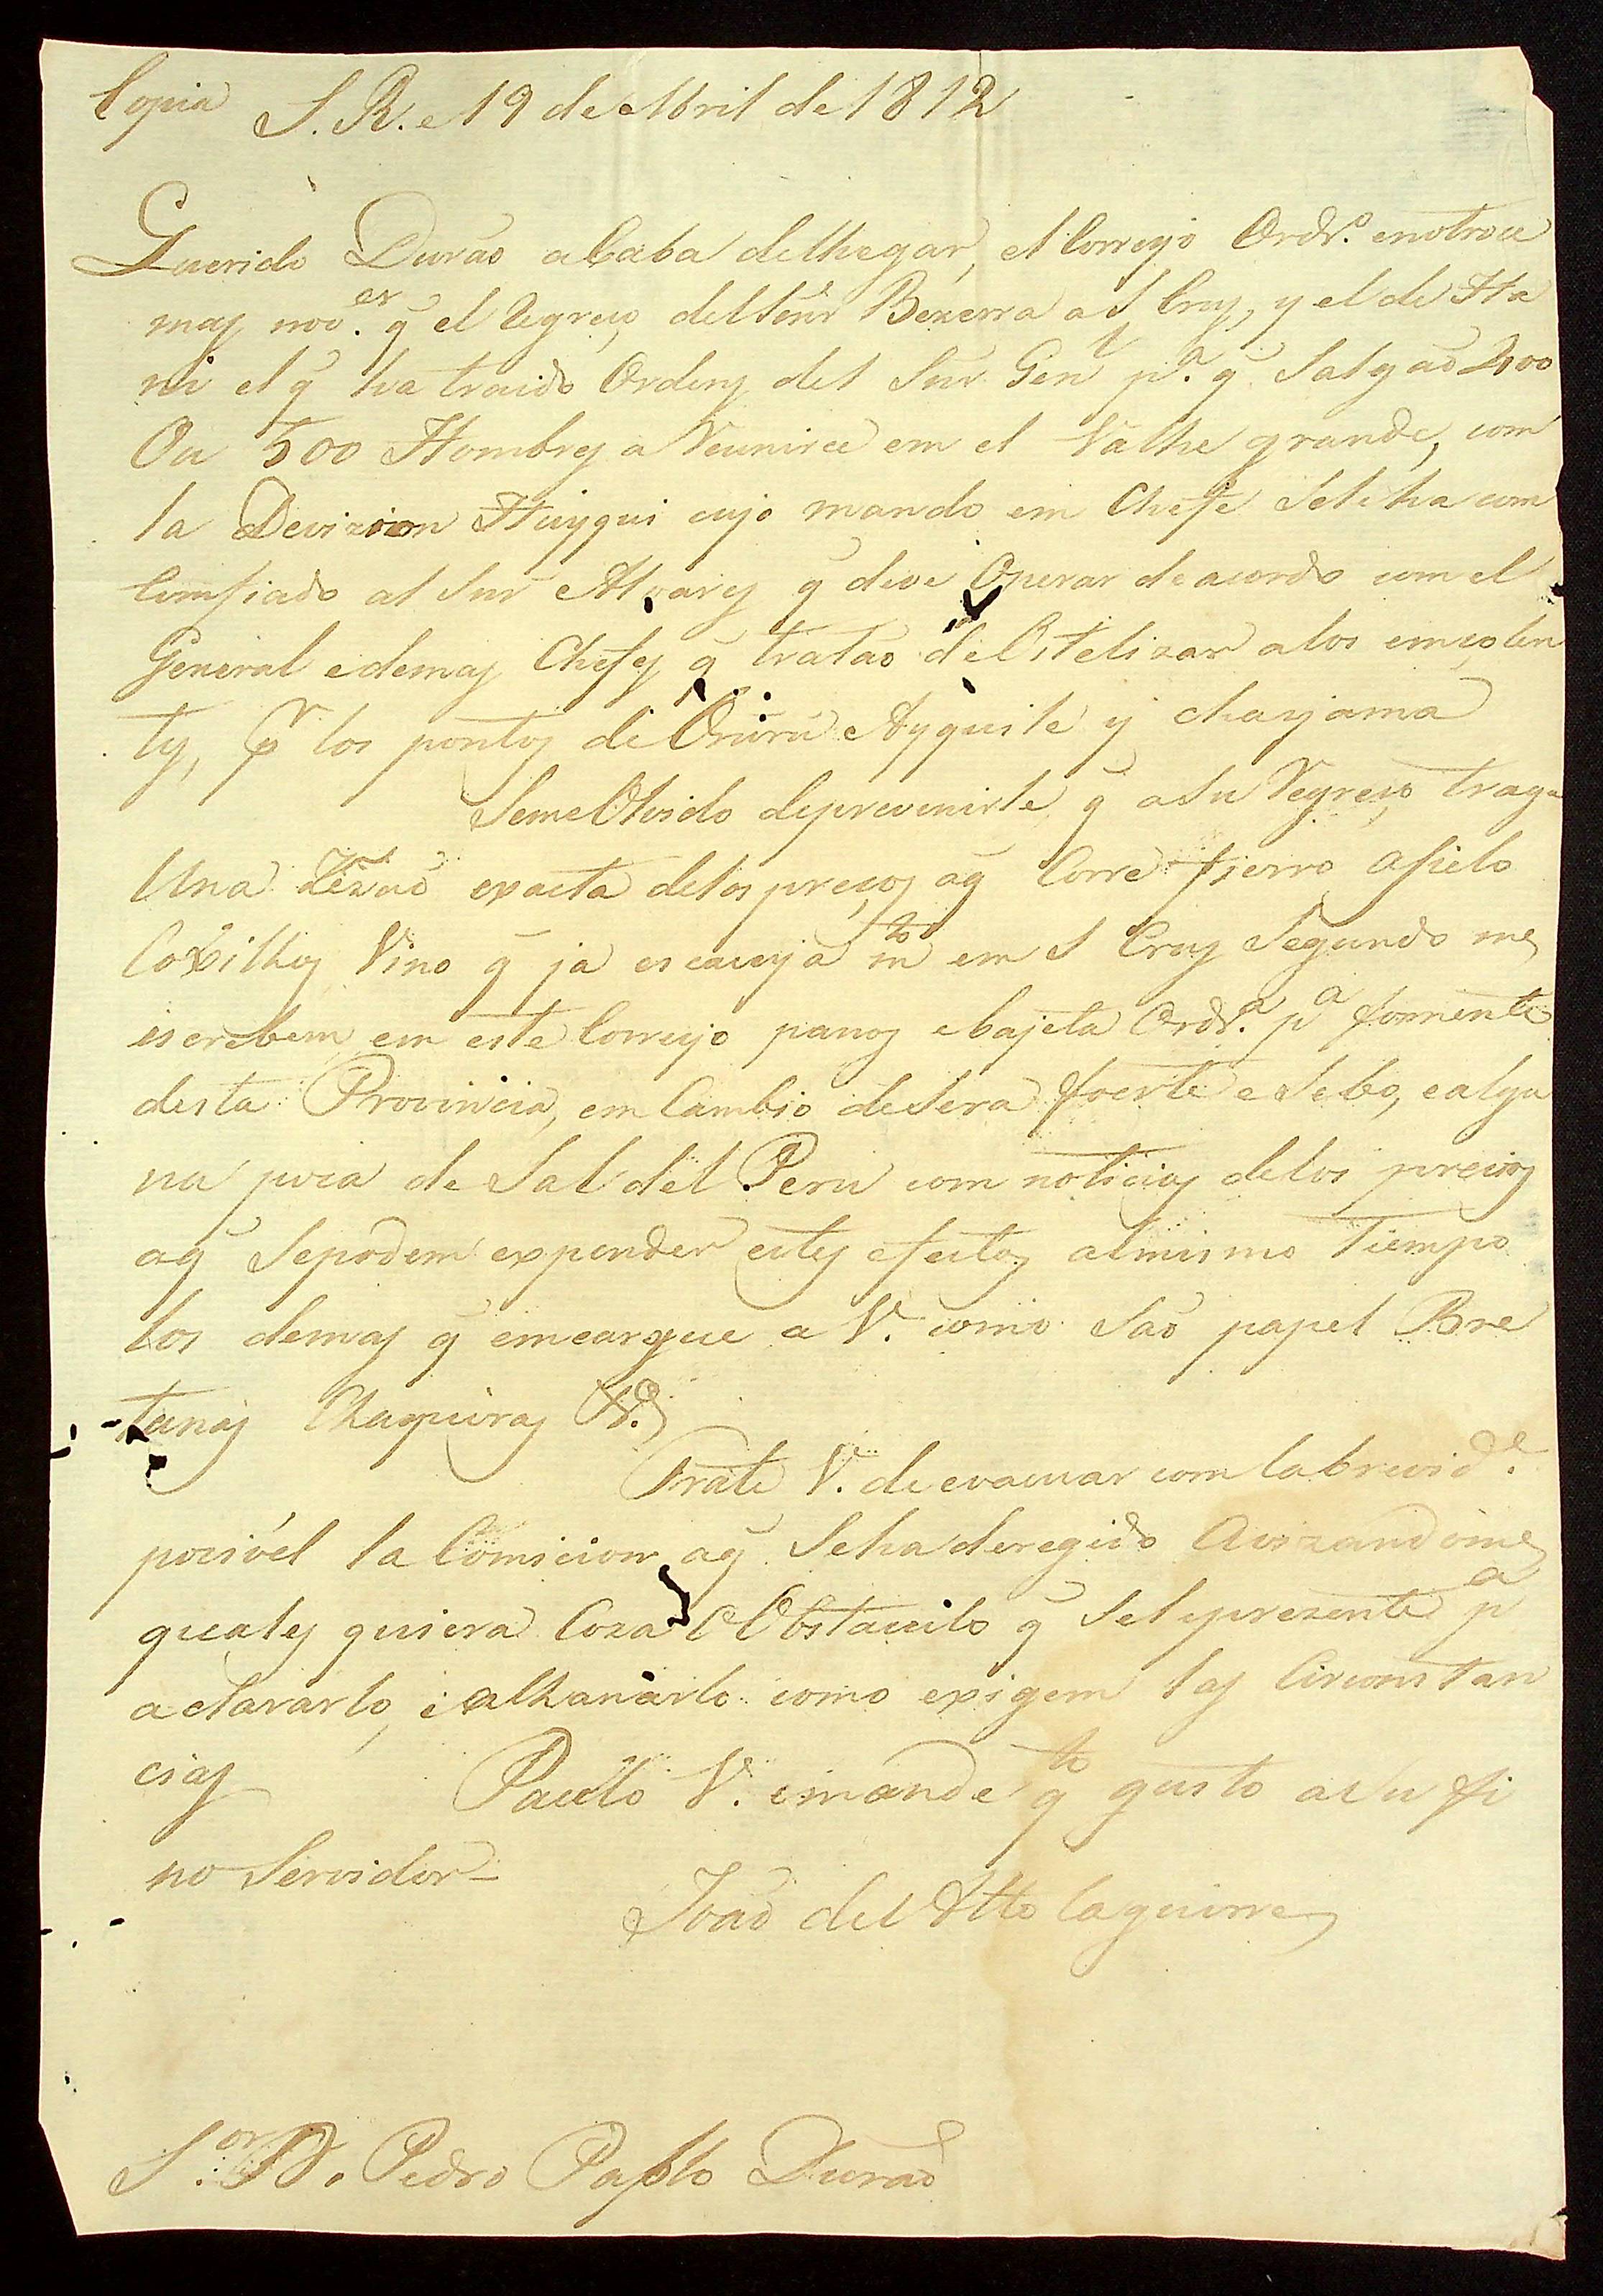 Copia S. R. e 19 de Abril de 1812
Querido Durão a Caba delhegar, el Correyo Ordr.º enotroce
maz nov.es q̃ el Regreço, del Señr Bezerra a S Cruz, y el de Ha
ni el q̃ ha traido Ordenz del Snr Gen.l p.a q̃ Salgaõ 400
Ou 500 Hombrez a Reunirce em el Valhe grande, com
la Devizion Huyqui cujo mando em Chefe Sele ha com
Comfiado al Snr Alvarez q̃ deve Operar de acordo com el
General e demaz Chefez q̃ trataõ de Ostelizar a los emçolen
tz, pr los pontoz de Oruru Ayquile y chayama
Seme Olvido deprevenirle q̃ a Su Regreço traga
Una exacta delos preçoz aq̃ Corre fierro
Coxilhoz Vino q̃ ja escaceja m.to em S Cruz Segundo me
escrebem em este Correyo panoz e bajeta Ordr.a p.a fomento
desta Provincia, em Cambio deSera foerte e Sebo, ealgu
na poca de Sal del Peru com noticiaz delos preçioz
aq̃ Sepodem expender estez efectoz almismo Tiempo
los demaz q̃ emcargue a V. como Saõ papel Bre
tanaz Chaquiraz &.a
Trate V. de evacuar com la brevid.e
pocivel la Comicion aq̃ Seha deregido Avizandome
qualez quiera Coza O Obstaculo q̃ Selepresente p.a
aclararlo, i alhanarlo como exigem laz Circonstan
ciaz Pacelo V. emande q.to gusto a Su fi
no Servidor –
Joaõ del Atto laguirre
S.or D. Pedro Pablo Duraõ